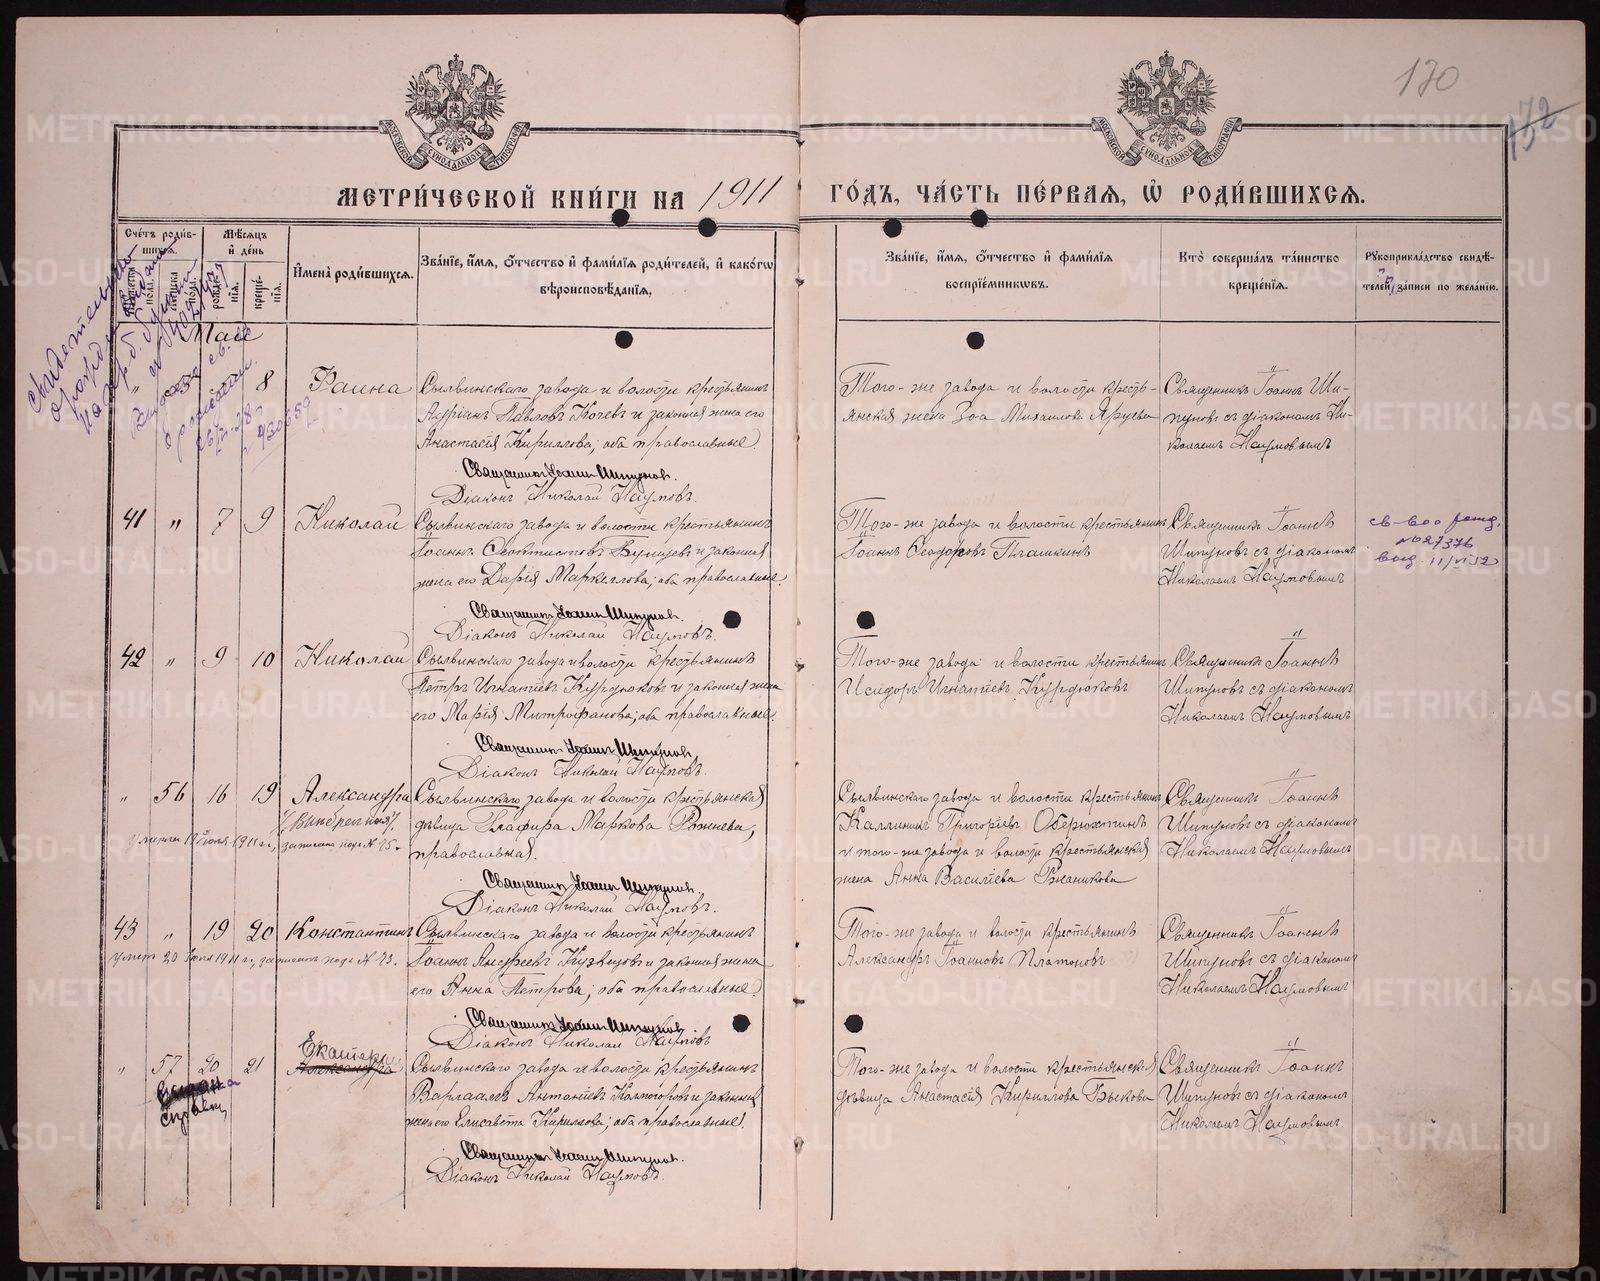 130
152
МОСКОВСКОЙ СѴНОДАЛЬНОЙ ТИПОГРАФІИ
МЕТРИ́ЧЕСКОЙ КНИ́ГИ НА 1911 ГО́ДЪ, ЧА́СТЬ ПЕ́РВАЯ, Ѡ РОДИ́ВШИХСЯ.
Счетъ роди́вшихся.
Мѣсяцъ и день
рожденія.
крещенія.
Имена роди́вшихся.
Зва́нїе, и́мя, о́тчество и фами́лїя роди́телей, и како́гѡ вѣроисповѣ́данїя.
Зва́нїе, и́мя, о́тчество и фами́лїя воспрїе́мникѡвъ.
Кто̀ соверша́лъ та́инство креще́нїя.
Рꙋкоприкла́дство свидѣ́телей за́писи по жела́нїю.
Май
" 8 Фаина
Сылвинскаго завода и волости крестьянинъ
Адріанъ Павловъ Кочевъ и законная жена его
Анастасія Кириллова; оба православные.
Священникъ Іоаннъ Шипуновъ.
Діаконъ Николай Наумовъ.
Того-же завода и волости кресть-
янская жена Зоа Михаилова
Священникъ Іоаннъ Ши-
пуновъ съ діакономъ Ни-
колаемъ Наумовымъ
41 " 7 9 Николай
Сылвинскаго завода и волости крестьянинъ
Іоаннъ Ѳеоктистовъ и законная
жена его Дарія Маркеллова; оба православные.
Священникъ Іоаннъ Шипуновъ.
Діаконъ Николай Наумовъ.
Того-же завода и волости крестьянинъ
Іоаннъ Ѳеодоровъ Плашкинъ
Священникъ Іоаннъ
Шипуновъ съ діакономъ
Николаемъ Наумовымъ
св-во о рожд.
№ 27376
выд. 11/VI 52
42 " 9 10 Николай
Сылвинскаго завода и волости крестьянинъ
Петръ Игнатіевъ Курдюковъ и законная жена
его Марія Митрофанова; оба православные.
Священникъ Іоаннъ Шипуновъ.
Діаконъ Николай Наумовъ.
Того-же завода и волости крестьянинъ
Исидоръ Игнатіевъ Курдюковъ
Священникъ Іоаннъ
Шипуновъ съ діакономъ
Николаемъ Наумовымъ
" 56 16 19 Александра
(Внѣбрачная).
Сылвинскаго завода и волости крестьянская
дѣвица Глафира Маркова Рожнева,
православная.
Умерла 19 Іюля 1911 г., записана подъ № 75.
Священникъ Іоаннъ Шипуновъ.
Діаконъ Николай Наумовъ.
Сылвинскаго завода и волости крестьянинъ
Каллиникъ Григоріевъ Оберюхтинъ
и того-же завода и волости крестьянская
жена Анна Василіева
Священникъ Іоаннъ
Шипуновъ съ діакономъ
Николаемъ Наумовымъ
43 " 19 20 Константинъ
Умеръ 20 Іюля 1911 г., записанъ подъ № 73.
Сылвинскаго завода и волости крестьянинъ
Іоаннъ Андреевъ Кузнецовъ и законная жена
его Анна Петрова; оба православные.
Священникъ Іоаннъ Шипуновъ
Діаконъ Николай Наумовъ
Того-же завода и волости крестьянинъ
Александръ Іоанновъ Платоновъ
Священникъ Іоаннъ
Шипуновъ съ діакономъ
Николаемъ Наумовымъ
" 57 20 21 Екатери
Александра
справка
Сылвинскаго завода и волости крестьянинъ
Варлаамъ Антоніевъ Колмогоровъ и законная
жена его Елисавета Кириллова; оба православные.
Священникъ Іоаннъ Шипуновъ.
Діаконъ Николай Наумовъ.
Того-же завода и волости крестьянская
дѣвица Анастасія Кириллова Быкова
Священникъ Іоаннъ
Шипуновъ съ діакономъ
Николаемъ Наумовымъ.
METRIKI.GASO-URAL.RU